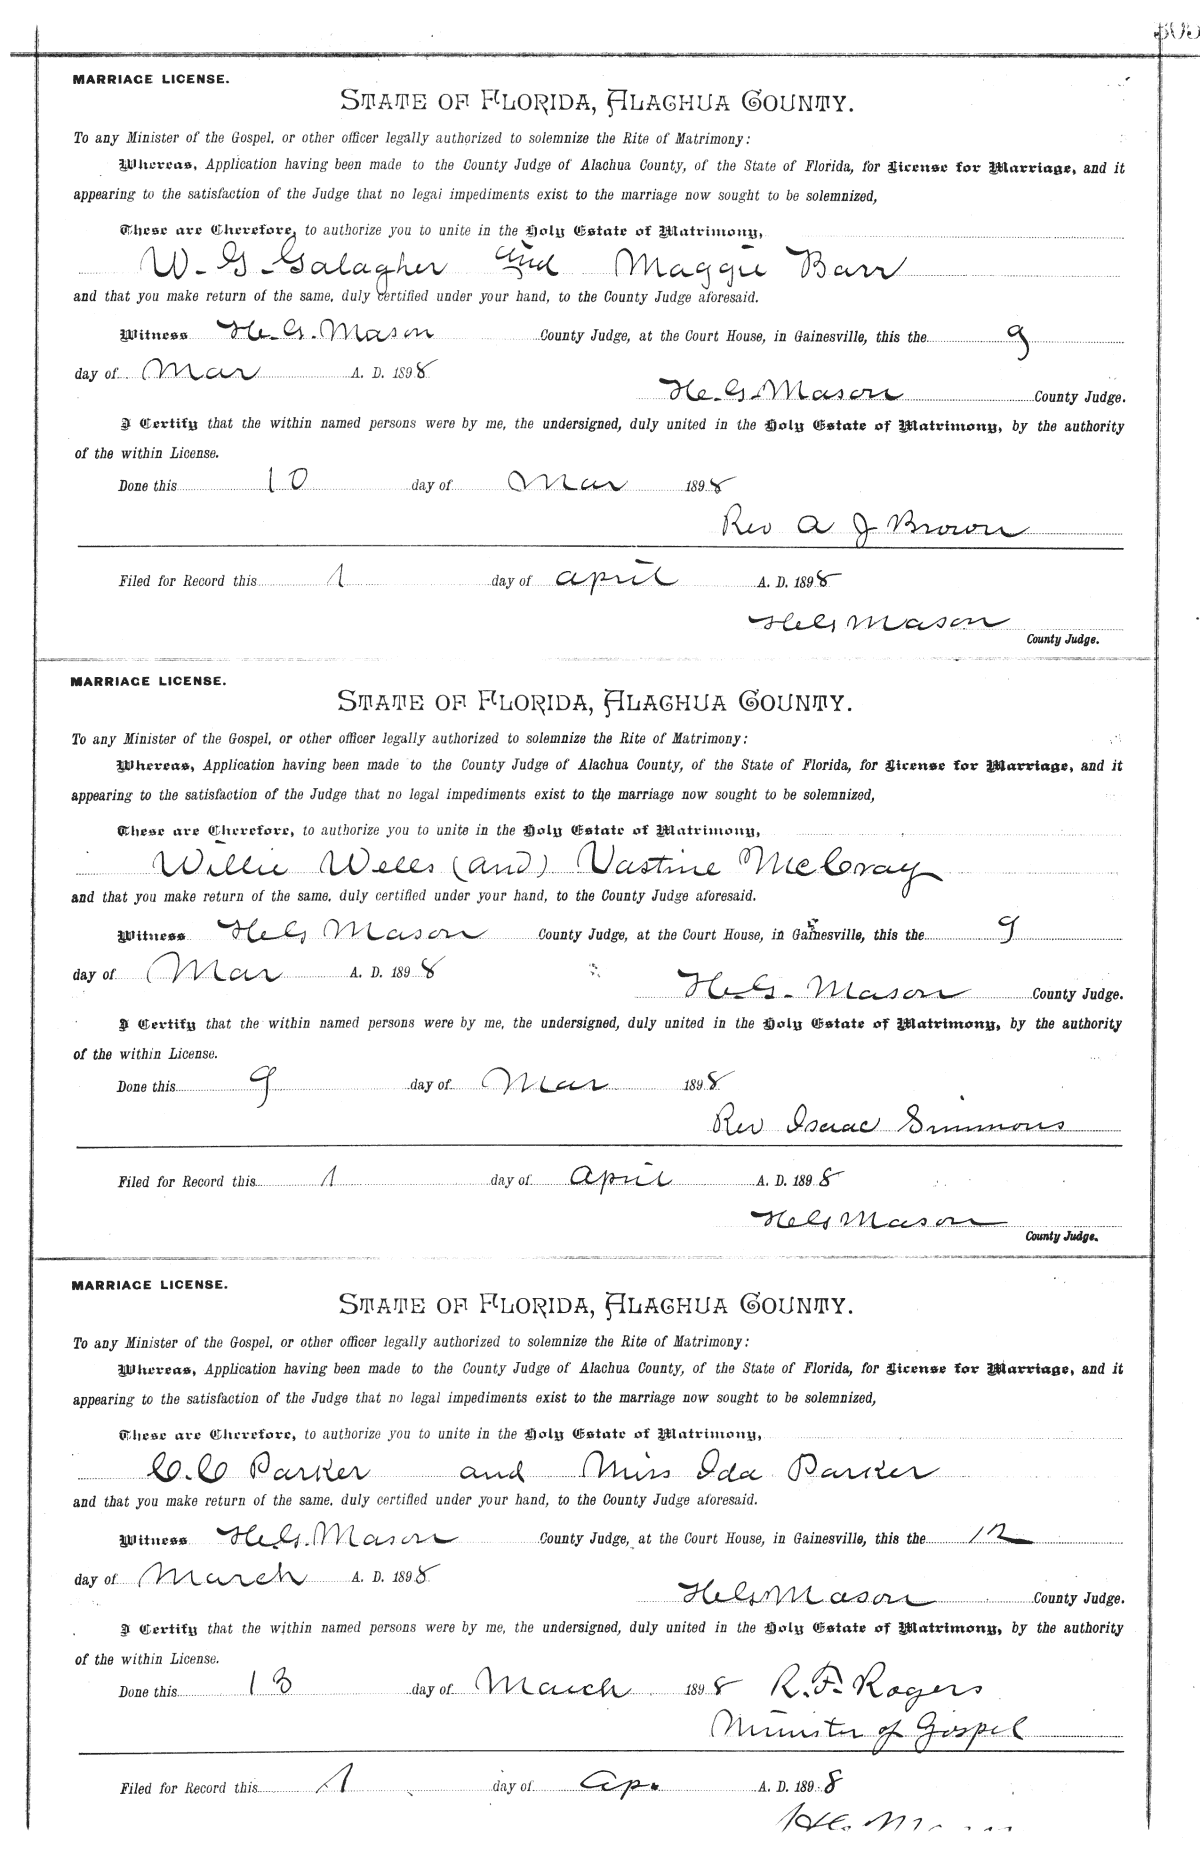 MARRIAGE LICENSE.
STATE OF FLORIDA, ALACHUA COUNTY.
To any Minister of the Gospel, or other officer legally authorized to solemnize the Rite of Matrimony:
Whereas, Application having been made to the County Judge of Alachua County, of the State of Florida, for License for Marriage, and it
appearing to the satisfaction of the Judge that no legal impediments exist to the marriage now sought to be solemnized,
These are Therefore, to authorize you to unite in the Holy Estate of Matrimony,
W. G. Galagher and Maggie Barr
and that you make return of the same, duly certified under your hand, to the County Judge aforesaid.
Witness H. G. Mason County Judge, at the Court House, in Gainesville, this the 9
day of Mar A. D. 1898
H. G. Mason County Judge.
I Certify that the within named persons were by me, the undersigned, duly united in the Holy Estate of Matrimony, by the authority
of the within License.
Done this 10 day of Mar 1898
Rev A J Brown
Filed for Record this 1 day of April A. D. 1898
H G Mason
County Judge.
MARRIAGE LICENSE.
STATE OF FLORIDA, ALACHUA COUNTY.
To any Minister of the Gospel, or other officer legally authorized to solemnize the Rite of Matrimony:
Whereas, Application having been made to the County Judge of Alachua County, of the State of Florida, for License for Marriage, and it
appearing to the satisfaction of the Judge that no legal impediments exist to the marriage now sought to be solemnized,
These are Therefore, to authorize you to unite in the Holy Estate of Matrimony,
Willie Wells (and) Vastine McCray
and that you make return of the same, duly certified under your hand, to the County Judge aforesaid.
Witness H G Mason County Judge, at the Court House, in Gainesville, this the 9
day of Mar A. D. 1898
H. G. Mason County Judge.
I Certify that the within named persons were by me, the undersigned, duly united in the Holy Estate of Matrimony, by the authority
of the within License.
Done this 9 day of Mar 1898
Rev Isaac Simmons
Filed for Record this 1 day of April A. D. 1898
H G Mason
County Judge.
MARRIAGE LICENSE.
STATE OF FLORIDA, ALACHUA COUNTY.
To any Minister of the Gospel, or other officer legally authorized to solemnize the Rite of Matrimony:
Whereas, Application having been made to the County Judge of Alachua County, of the State of Florida, for License for Marriage, and it
appearing to the satisfaction of the Judge that no legal impediments exist to the marriage now sought to be solemnized,
These are Therefore, to authorize you to unite in the Holy Estate of Matrimony,
C. C Parker and Miss Ida Parker
and that you make return of the same, duly certified under your hand, to the County Judge aforesaid.
Witness H. G. Mason County Judge, at the Court House, in Gainesville, this the 12
day of March A. D. 1898
H G Mason County Judge.
I Certify that the within named persons were by me, the undersigned, duly united in the Holy Estate of Matrimony, by the authority
of the within License.
Done this 13 day of March 1898 R. F. Rogers
Minister of Gospel
Filed for Record this 1 day of Ap. A. D. 1898